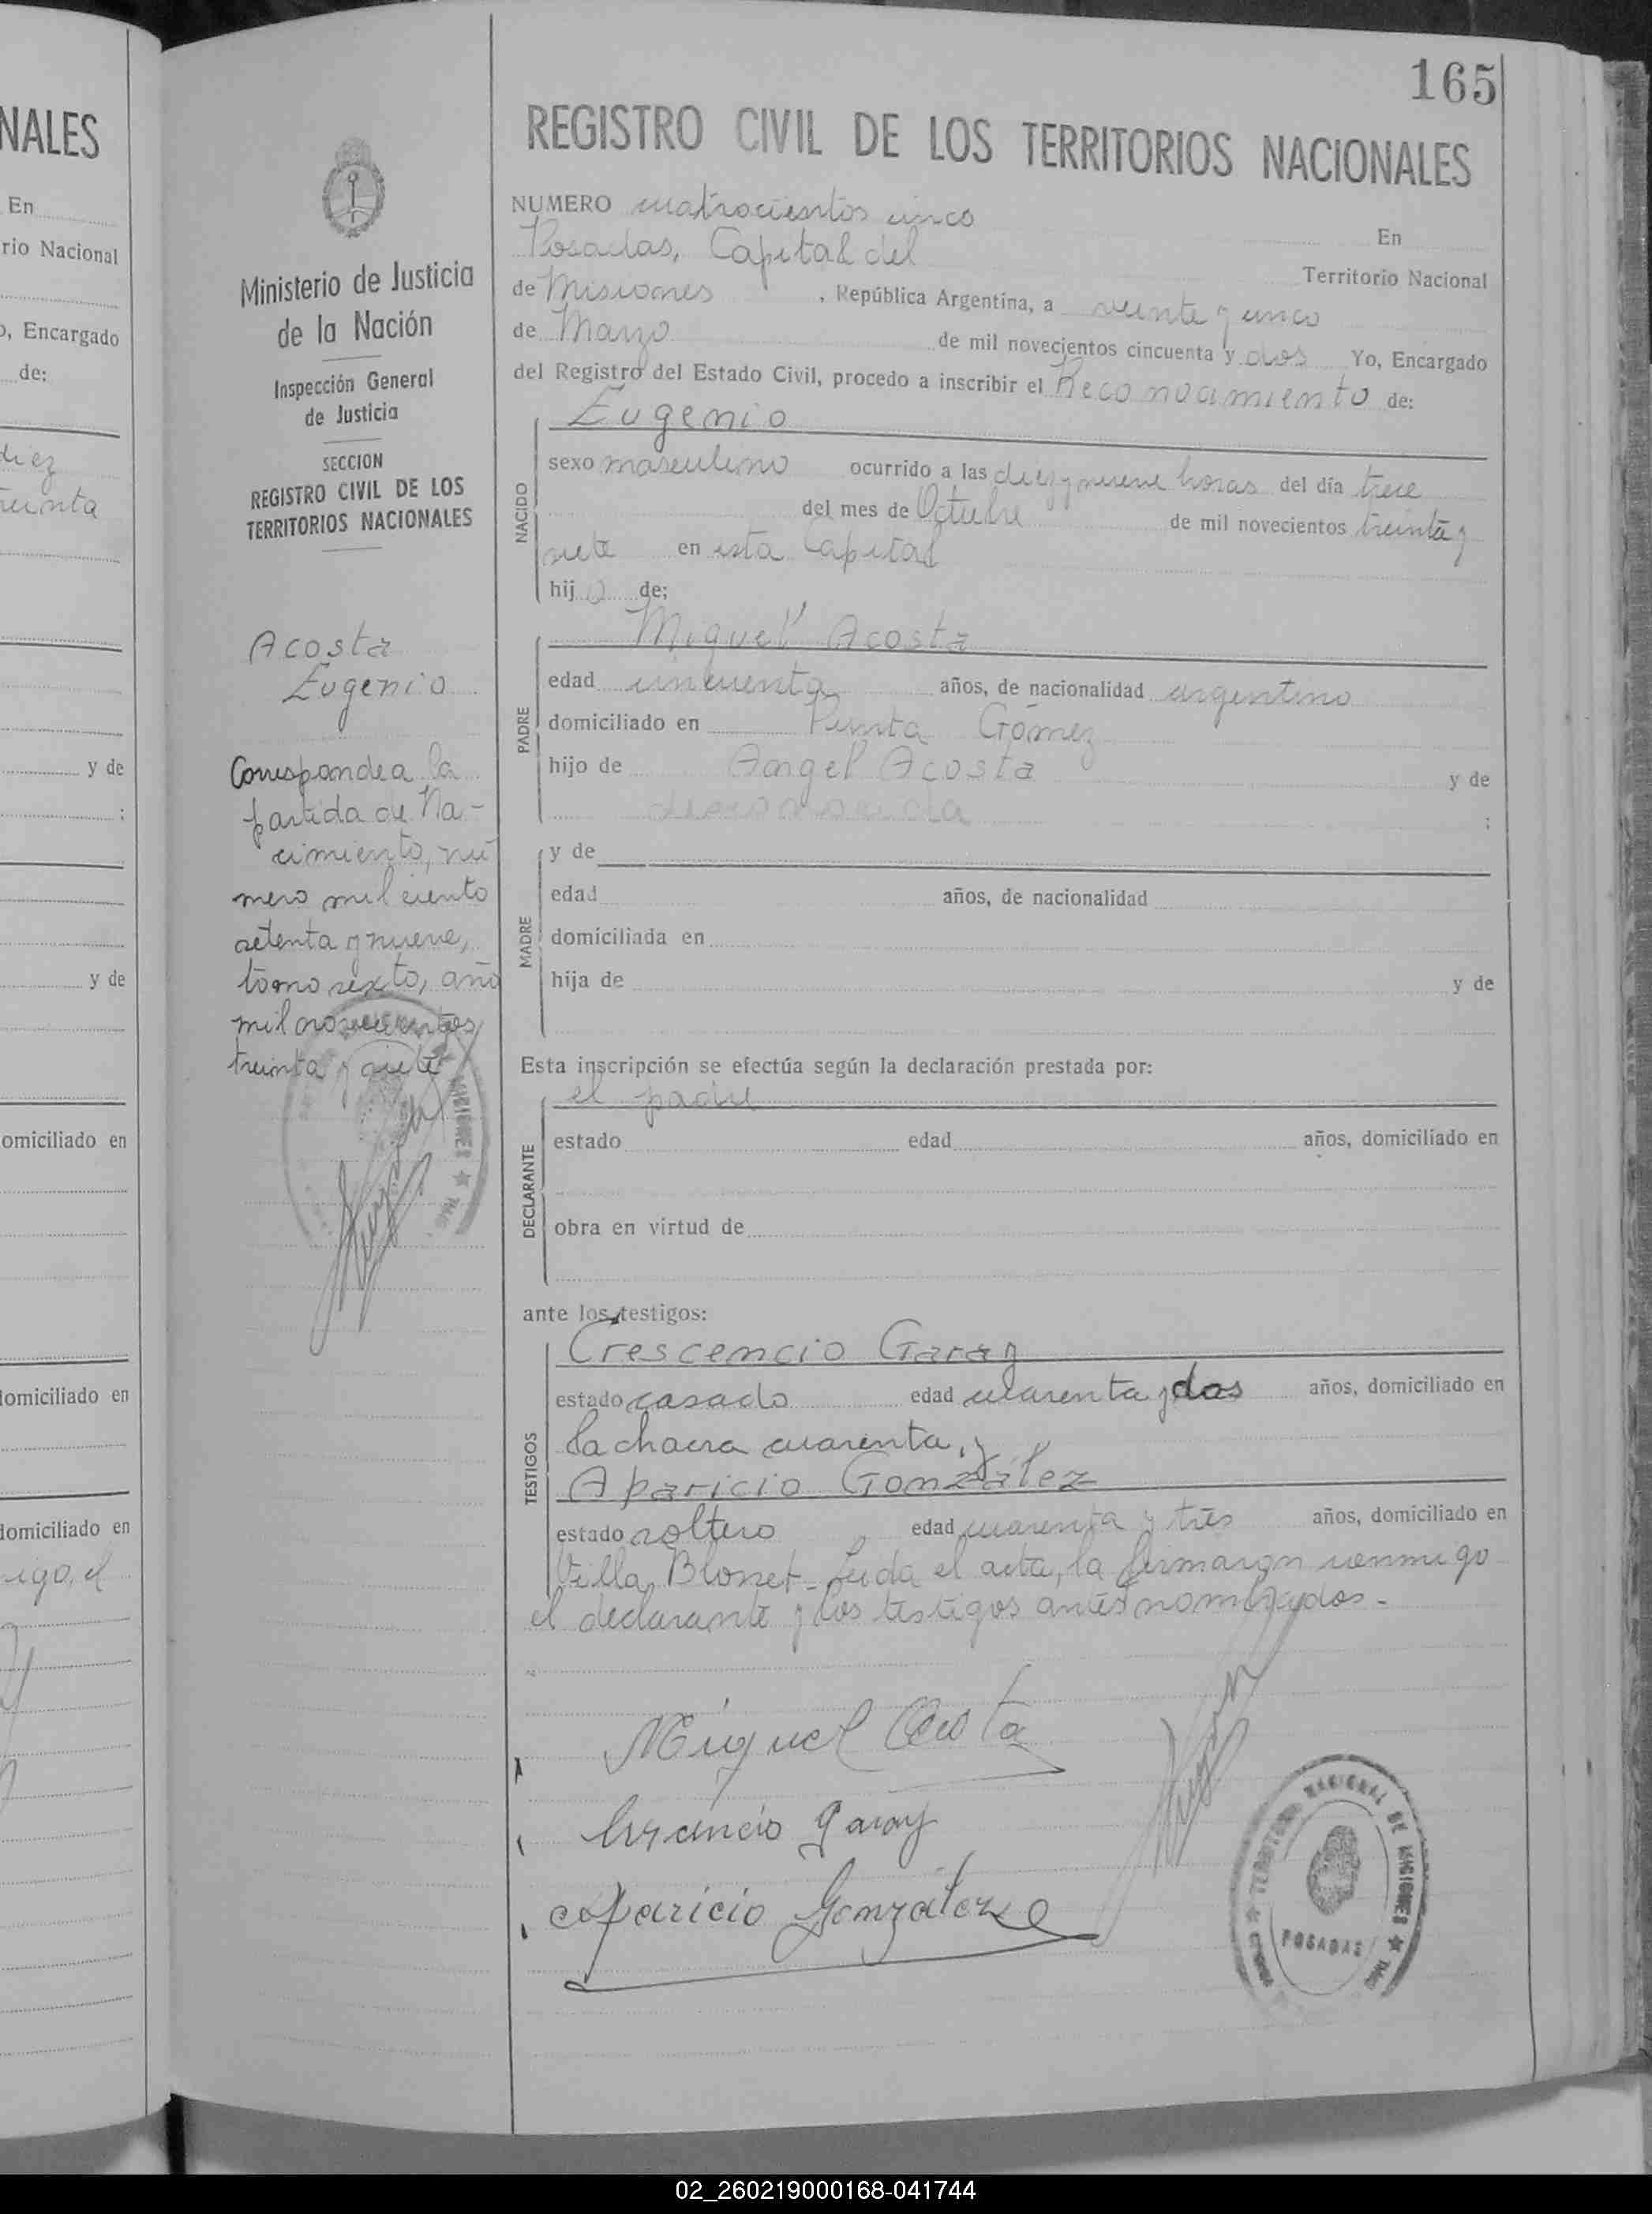 NALES
En
rio Nacional
o, Encargado
de:
diez
treinta
y de
;
y de
omiciliado en
domiciliado en
domiciliado en
igo, el
Ministerio de Justicia
de la Nación
Inspección General
de Justicia
SECCION
REGISTRO CIVIL DE LOS
TERRITORIOS NACIONALES
Acosta
Eugenio
Corresponde a la
partida de Na-
cimiento, nú
mero mil ciento
setenta y nueve,
tomo sexto, año
mil novecientos
treinta y siete
165
REGISTRO CIVIL DE LOS TERRITORIOS NACIONALES
NUMERO cuatrocientos cinco
En
Posadas, Capital del Territorio Nacional
de Misiones, República Argentina, a veinte y cinco
de Marzo de mil novecientos cincuenta y dos Yo, Encargado
del Registro del Estado Civil, procedo a inscribir el Reconocimiento de:
Eugenio
NACIDO
sexo masculino ocurrido a las diez y nueve horas del día trece
del mes de Octubre de mil novecientos treinta y
siete en esta Capital
hijo de;
PADRE
Miguel Acosta
edad cincuenta años, de nacionalidad argentino
domiciliado en Punta Gómez
hijo de Angel Acosta y de
desconocida ;
MADRE
y de
edad años, de nacionalidad
domiciliada en
hija de y de
Esta inscripción se efectúa según la declaración prestada por:
el padre
DECLARANTE
estado edad años, domiciliado en
obra en virtud de
ante los testigos:
TESTIGOS
Crescencio Garay
estado casado edad cuarenta y dos años, domiciliado en
la chacra cuarenta, y
Aparicio González
estado soltero edad cuarenta y tres años, domiciliado en
Villa Blosset - Leida el acta, la firmaron conmigo
el declarante y los testigos antes nombrados -
Miguel Acosta
Crescencio Garay
Aparicio Gonzalez
TERRITORIO NACIONAL DE MISIONES
POSADAS
02_260219000168-041744